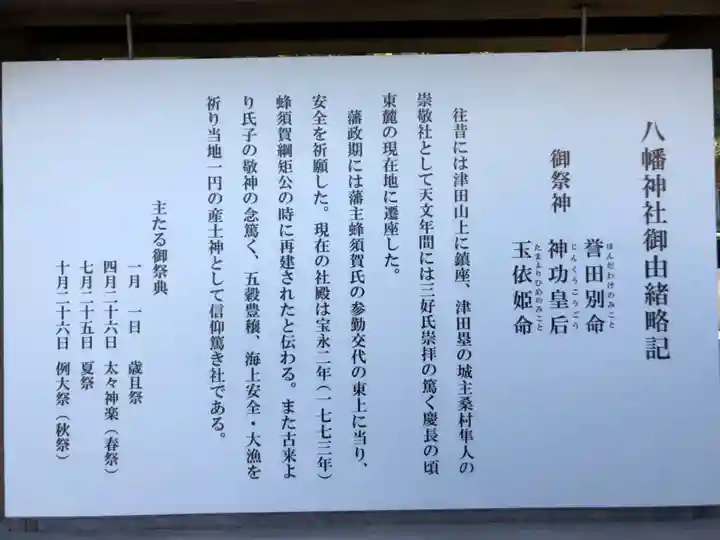 八幡神社御由緒略記
御祭神
誉田別命
ほんだわけのみこと
神功皇后
じんくうこうごう
玉依姫命
たまよりひめのみこと
往昔には津田山上に鎮座、津田塁の城主桑村隼人の
崇敬社として天文年間には三好氏崇拝の篤く慶長の頃
東麓の現在地に遷座した。
藩政期には藩主蜂須賀氏の参勤交代の東上に当り、
安全を祈願した。現在の社殿は宝永二年(一七七三年)
蜂須賀綱矩公の時に再建されたと伝わる。また古来よ
り氏子の敬神の念篤く、五穀豊穣、海上安全・大漁を
祈り当地一円の産土神として信仰篤き社である。
主たる御祭典
一月 一日 歳旦祭
四月二十六日 太々神楽(春祭)
七月二十五日 夏祭
十月二十六日 例大祭(秋祭)